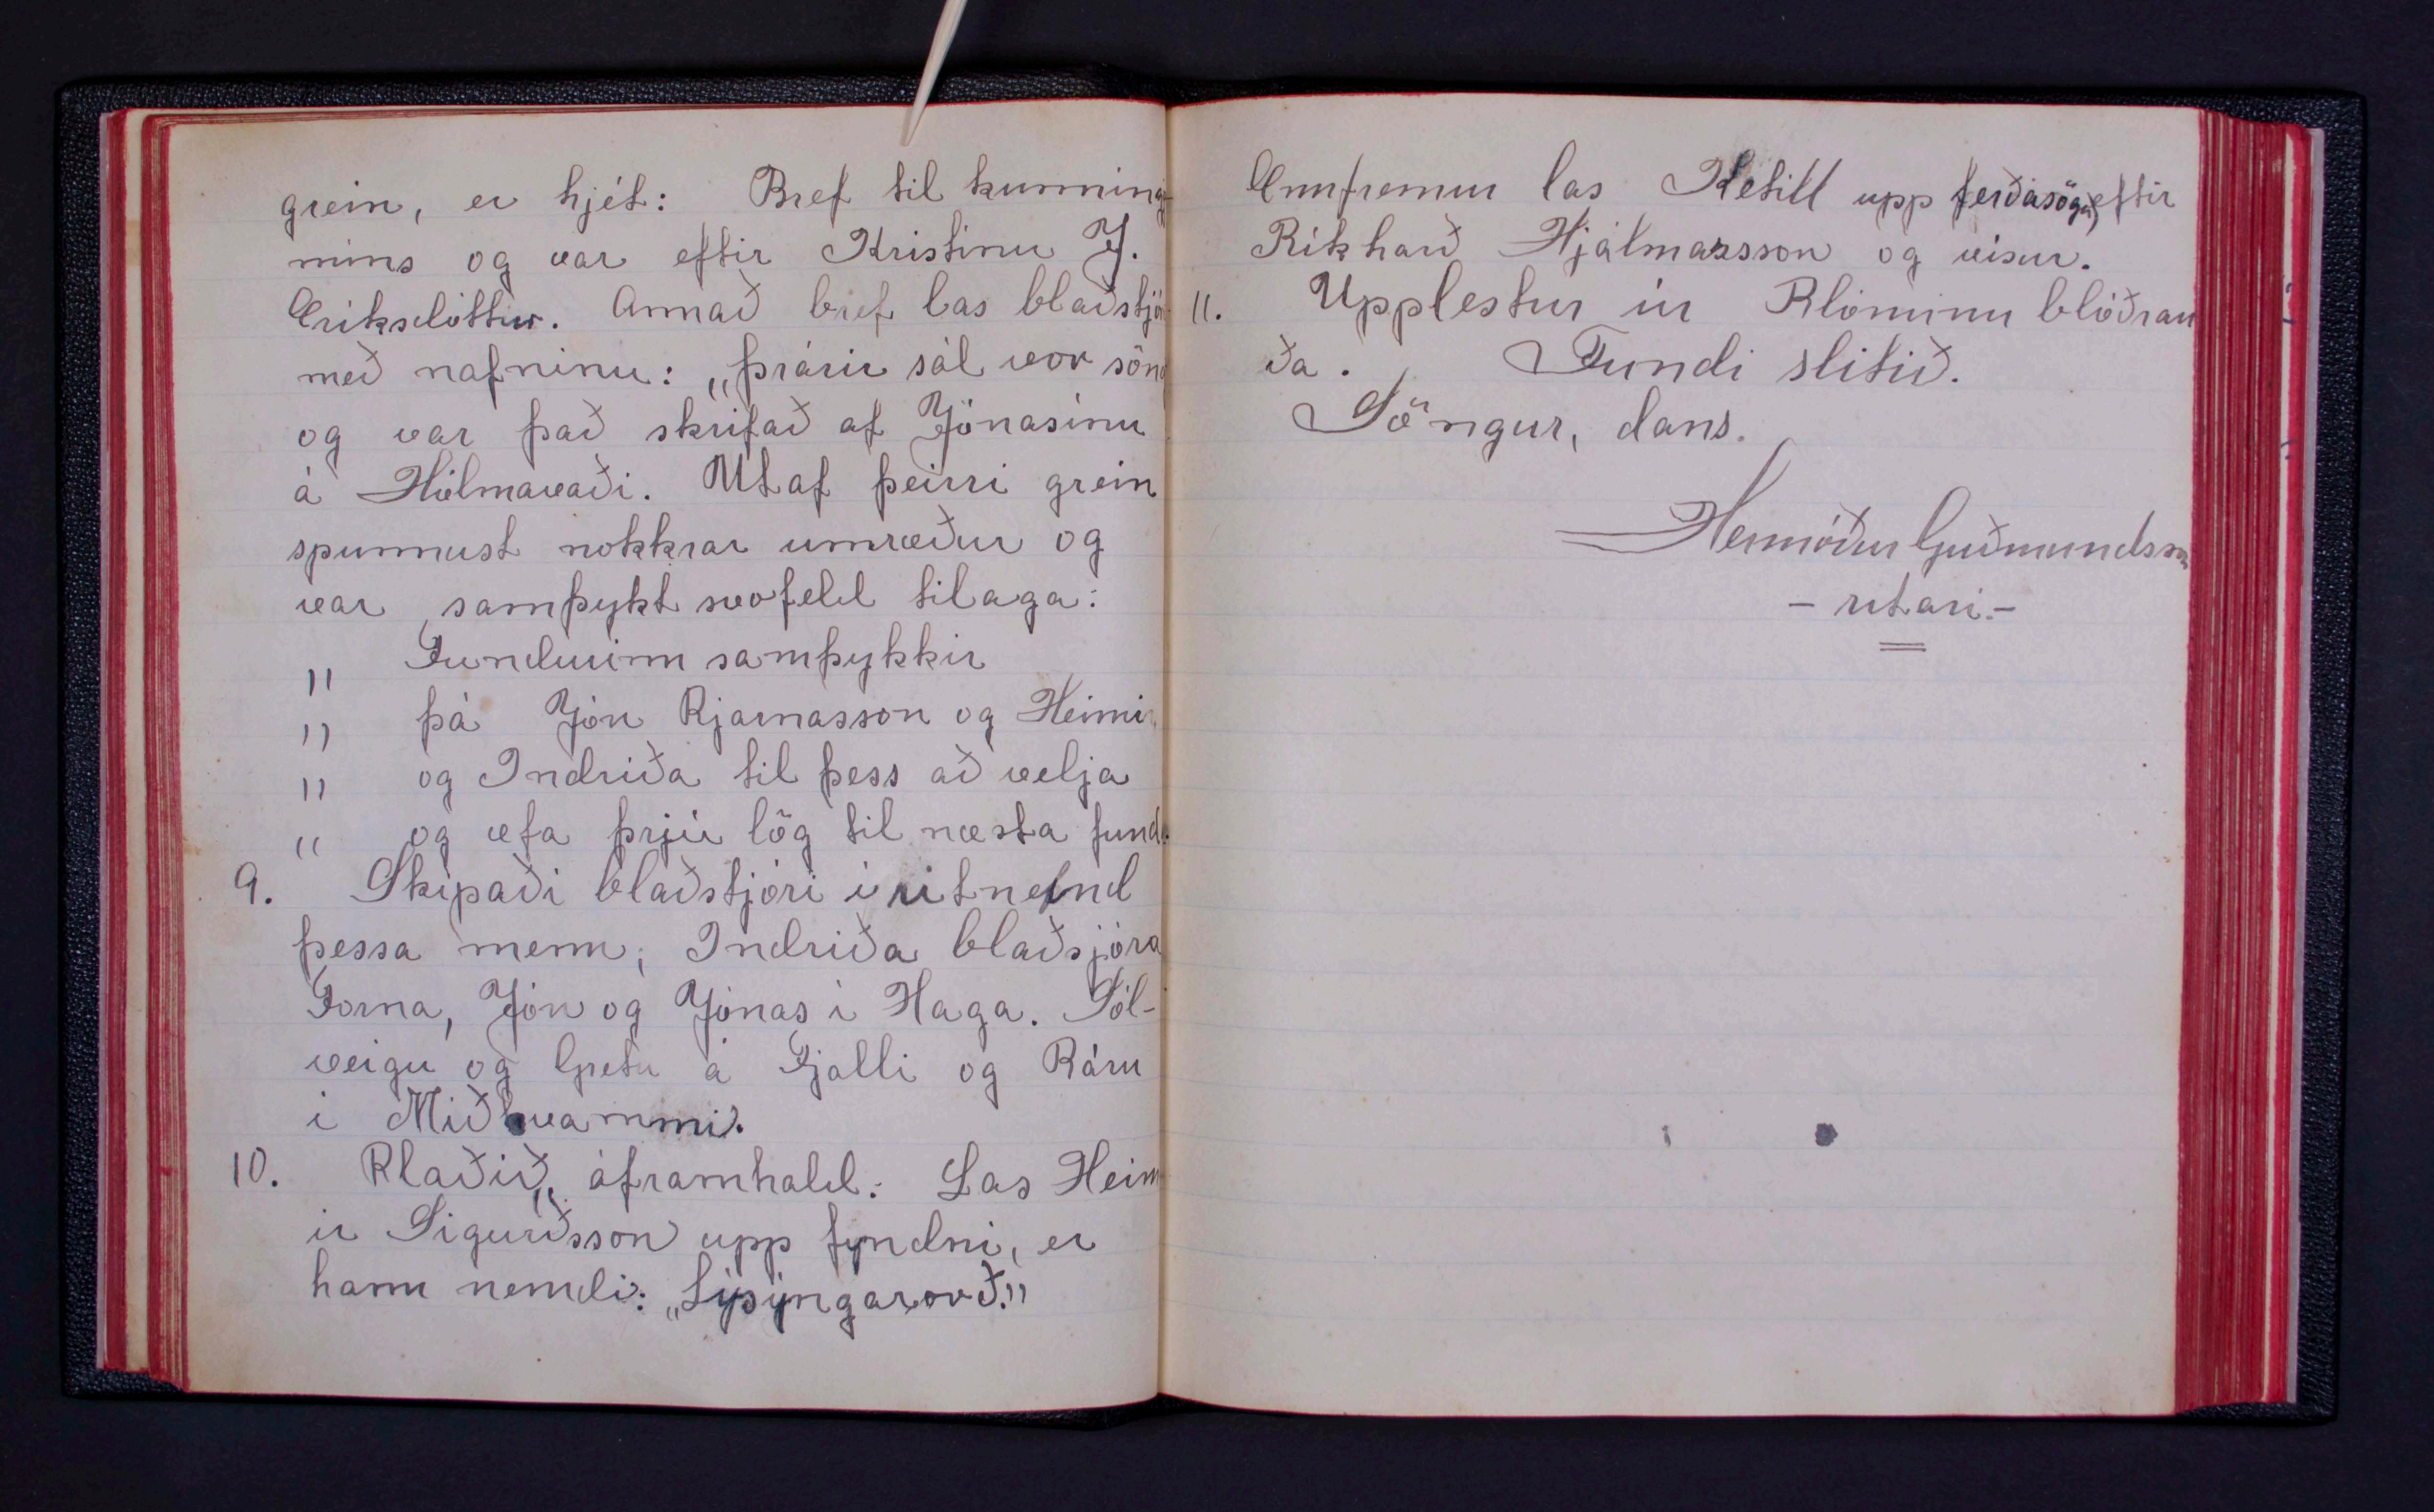 grein, er hjét: Bref til kunning
mins og var eftir Kristinu J.
Eriksdóttur. Annað bref las blaðstjór
með nafninu: „Þráir sál vor söng
og var það skrifað af Jónasínu
á Hólmavaði. Utaf þeirri grein
spunnust nokkrar umræður og
var samþykt svofeld tilaga:
„ Fundurinn samþykkir
„ þá Jón Bjarnasson og Heimir
„ og Indriða til þess að velja
„ og æfa þrjú lög til næsta fund
9. Skipaði blaðstjóri i ritnefnd
þessa menn; Indriða blaðsjóra
Forna, Jón og Jónas i Haga. Sól-
veigu og Gretu á Fjalli og Báru
i Miðhvammi.
10. Blaðið„ áframhald: Las Heim
ir Sigurðsson upp fyndni, er
hann nemdi: „Lýsýngarorð."
Ennfremur las Ketill upp ferðasögu, eftir
Rikharð Hjálmarsson og visur.
11. Upplestur úr Blóminu blóðrau
ða. Fundi slitið.
Söngur, dans.
Hermóður Guðmundsson
- ritari. -